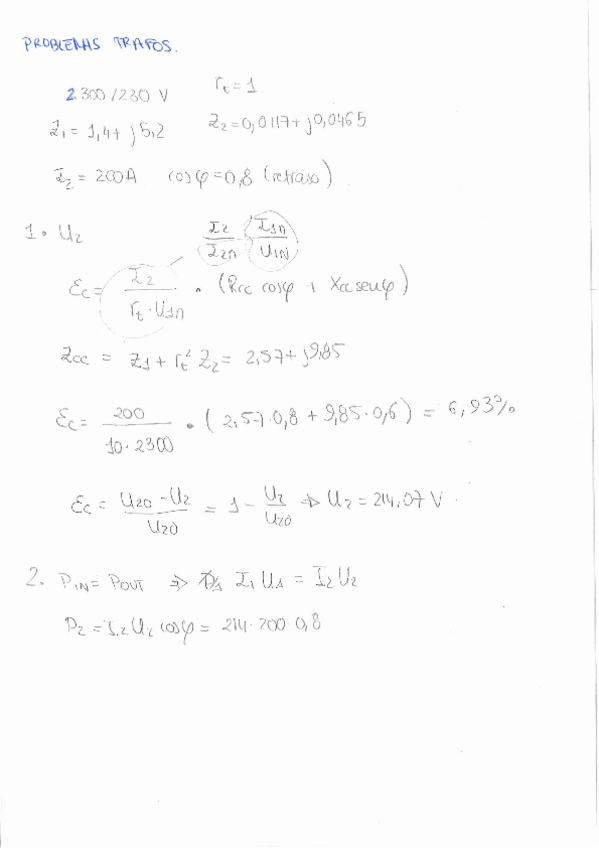 PROBLEMAS TRAFOS.
2300/230 V rt = 1
Z1 = 1,4 + j5,2 Z2 = 0,0117 + j0,0465
I2 = 200A cos φ = 0,8 (retraso)
1. U2 I2/I2n I1n/U1N
Ec = I2/(rt · U1n) · (Rcc cosφ + Xcc senφ)
Zcc = Z1 + rt² Z2 = 2,57 + j9,85
Ec = 200/(10·2300) · (2,57·0,8 + 9,85·0,6) = 6,93%
Ec = (U20 - U2)/U20 = 1 - U2/U20 ⇒ U2 = 214,07 V.
2. PIN = POUT ⇒ I1 U1 = I2 U2
P2 = I2 U2 cosφ = 214·200·0,8